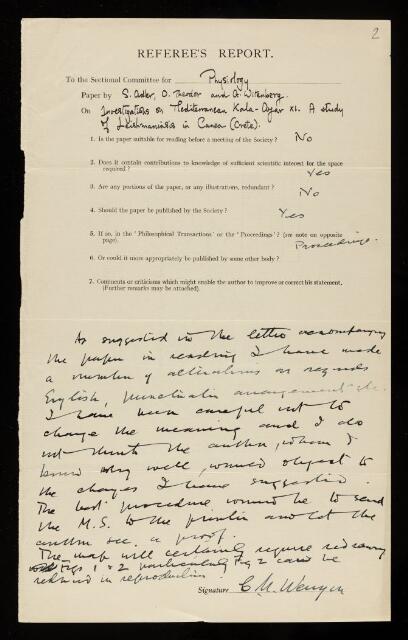 2
REFEREE'S REPORT.
To the Sectional Committee for Physiology
Paper by S. Adler, O. Theodor and G. Witenberg.
On Investigations on Mediterranean Kala-Azar XI. A study
of Leishmaniasis in Canea (Crete).
1. Is the paper suitable for reading before a meeting of the Society? No
2. Does it contain contributions to knowledge of sufficient scientific interest for the space
required? Yes
3. Are any portions of the paper, or any illustrations, redundant? No
4. Should the paper be published by the Society? Yes
5. If so, in the 'Philosophical Transactions' or the 'Proceedings'? (see note on opposite
page). Proceedings.
6. Or could it more appropriately be published by some other body?
7. Comments or criticisms which might enable the author to improve or correct his statement.
(Further remarks may be attached).
As suggested in the letter accompanying
the paper in reading I have made
a number of alterations as regards
English, punctuation arrangement etc.
I have been careful not to
change the meaning and I do
not think the author, whom I
know very well, would object to
the changes I have suggested.
The best procedure would be to send
the M.S. to the printer and let the
author see a proof.
The map will certainly require redrawing
Figs 1 & 2 particularly Fig 2 could be
reduced in reproduction.
Signature C. M. Wenyon